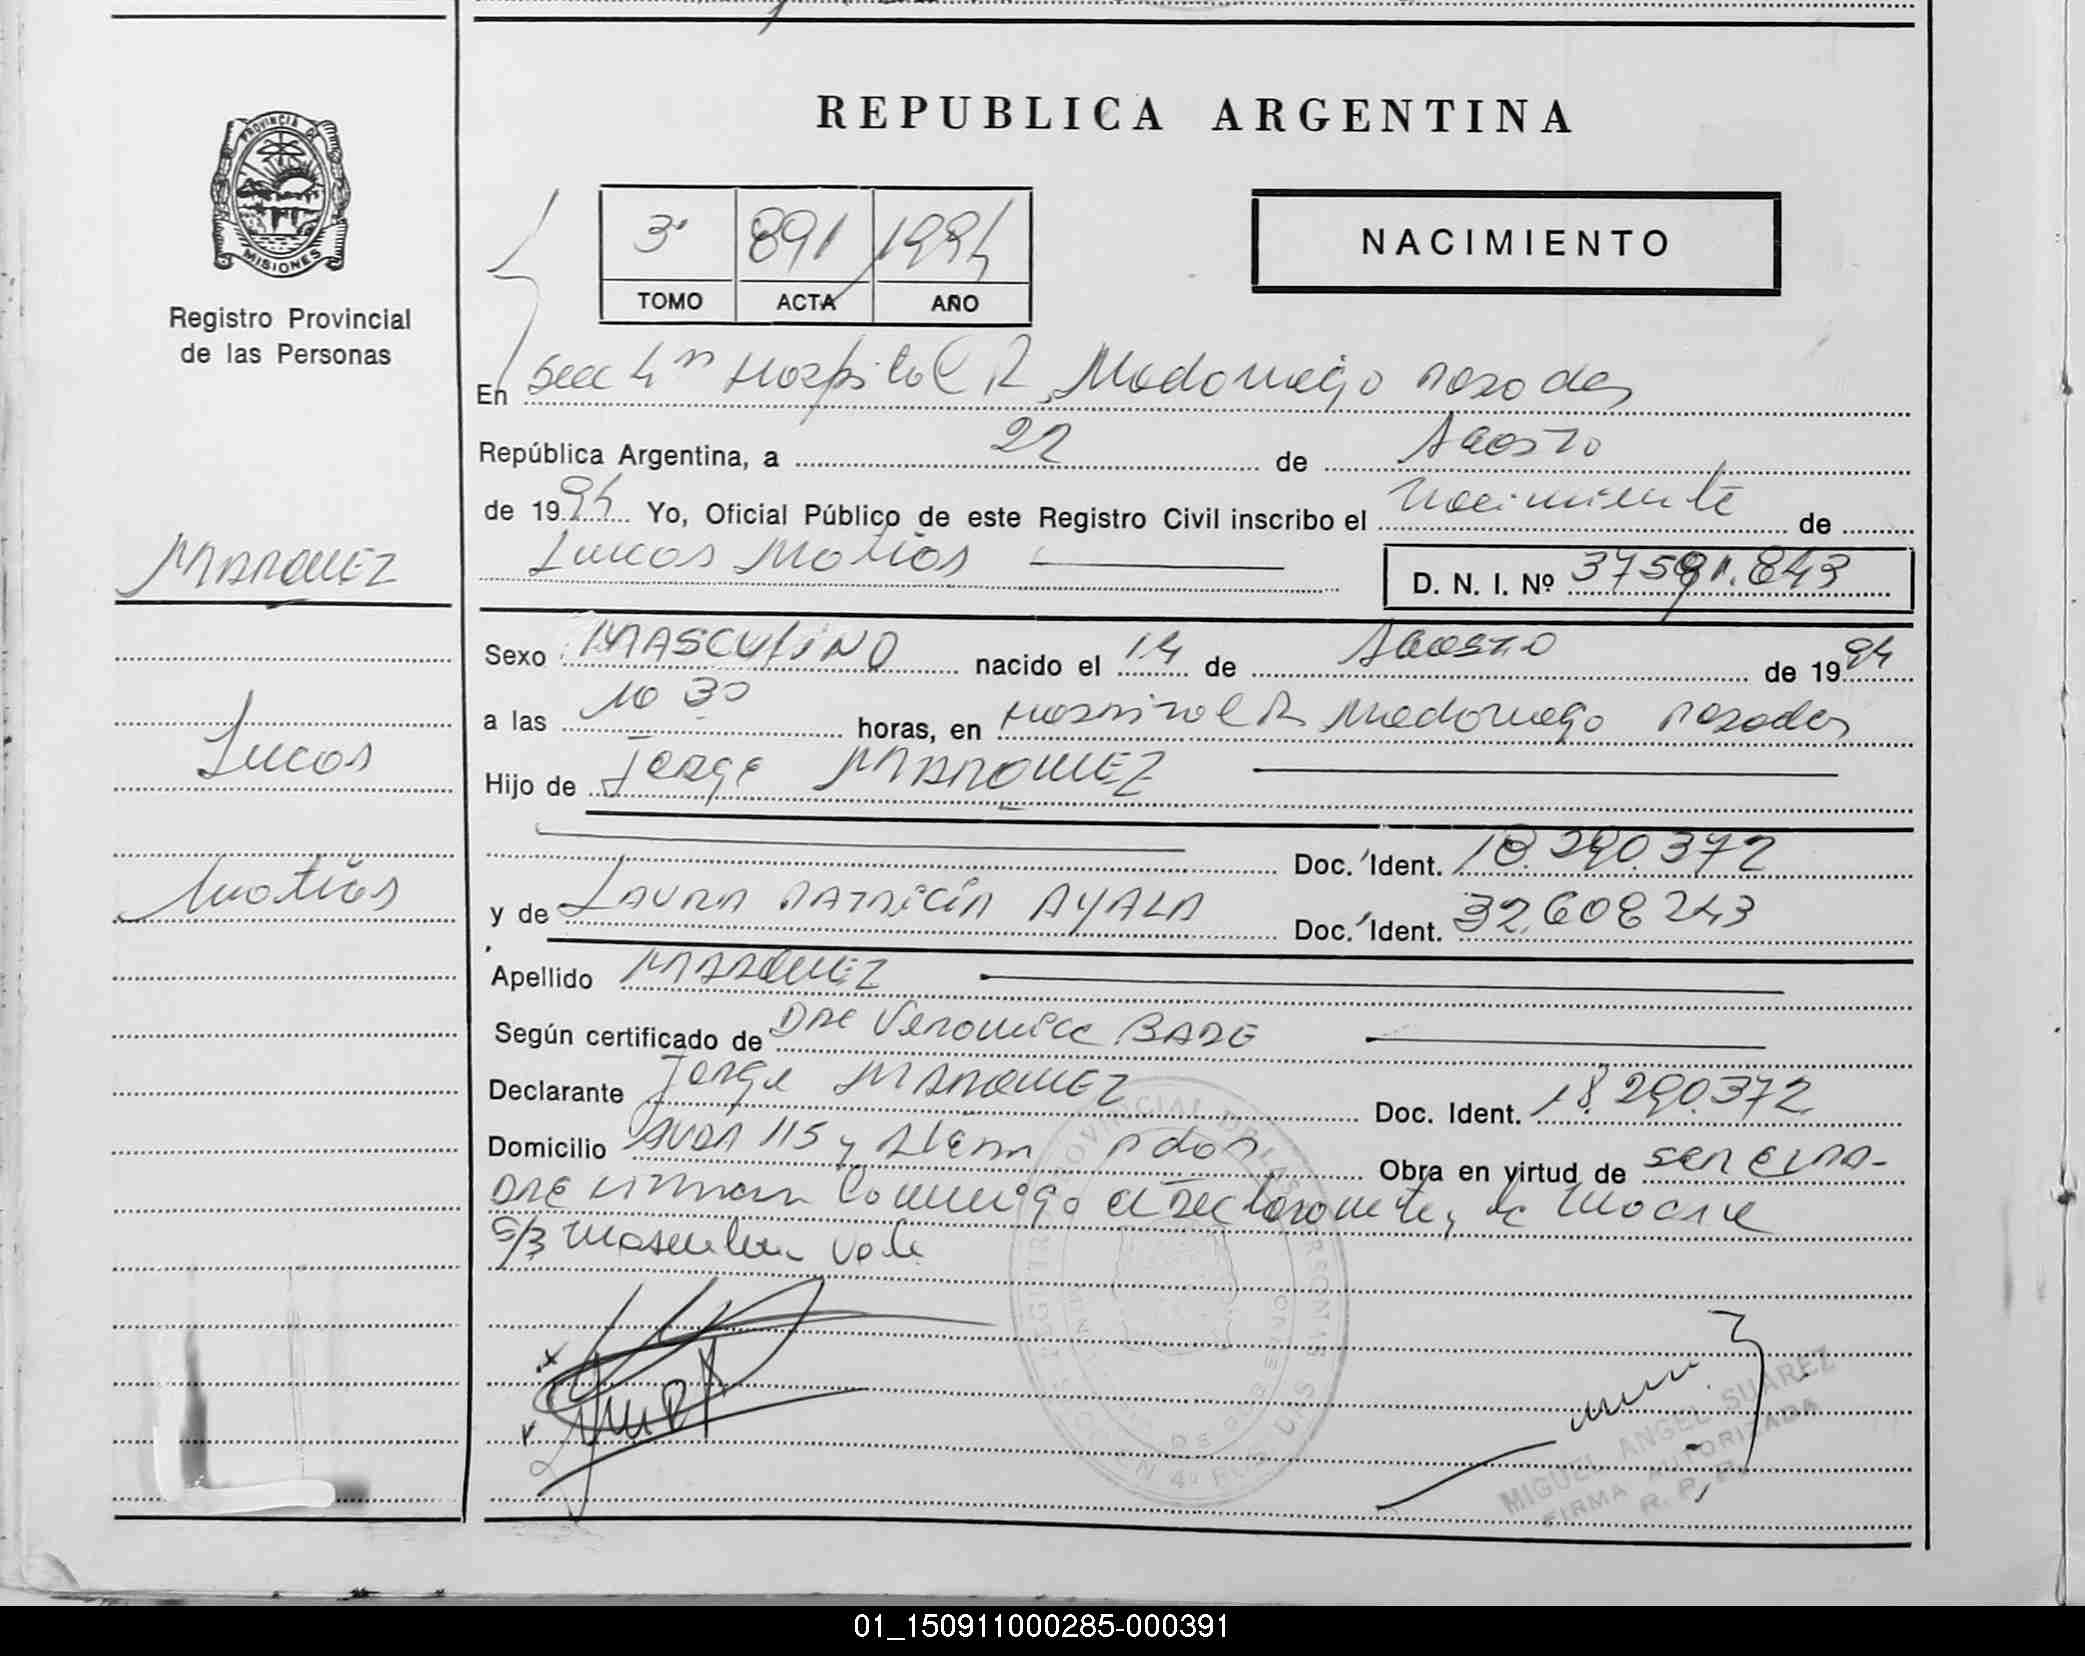 REPUBLICA ARGENTINA
PROVINCIA DE
MISIONES
Registro Provincial
de las Personas
3º 891 1994
TOMO ACTA AÑO
NACIMIENTO
En Secc 4ª Hospital R. Madariaga Posadas
República Argentina, a 22 de Agosto
de 1994 Yo, Oficial Público de este Registro Civil inscribo el nacimiento de
Lucas Matias D. N. I. Nº 37591.843
MARQUEZ
Lucas
Matias
Sexo MASCULINO nacido el 14 de Agosto de 1994
a las 10 30 horas, en Hospital R Madariaga Posadas
Hijo de Jorge MARQUEZ
Doc. Ident. 18.290.372
y de LAURA PATRICIA AYALA Doc. Ident. 32.608243
Apellido MARQUEZ
Según certificado de Dra Veronica BADE
Declarante Jorge MARQUEZ Doc. Ident. 18.290.372
Domicilio 115 y Pdas Obra en virtud de ser el pa-
dre firman conmigo el Declarante, la madre
S/B masculino vale
REGISTRO PROVINCIAL DE LAS PERSONAS
MIGUEL ANGEL SUAREZ
FIRMA AUTORIZADA
R. P. P.
01_150911000285-000391